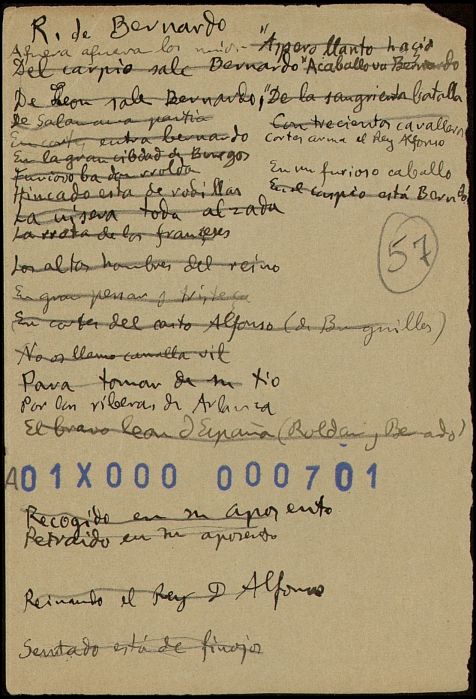 R. de Bernardo
Afuera afuera los mios - "Aspero llanto hacia
Del carpio sale Bernardo "A caballo va Bernardo
De Leon sale Bernardo, "De la sangrienta batalla
de Salamanca partia Con trecientos cavalleros
En cortes entra bernardo Cortes arma el Rey Alfonso
En la gran cibdad de Burgos
Furioso ba don rroldan En un furioso caballo
Hincado esta de rodillas En el carpio está Bernardo
La visera toda alzada
La rrota de los franzeses
57
Los altos hombres del reino
En gran pesar y tristeza
En cortes del casto Alfonso (de Burguillos)
No os llamo canalla vil
Para tomar de su tio
Por las riberas de Arlanza
El bravo leon d España (Roldan y Bernardo)
A01X000 000701
Recogido en su aposento
Retraido en su aposento
Reinando el Rey D Alfonso
Sentado está de finojos